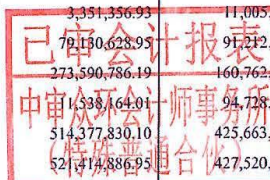 3,351,356.93 11,005,
79,130,628.95 91,212
已审会计报表
273,590,786.19 160,762
中审众环会计师事务所
11,538,164.01 94,728
514,377,830.10 425,663
(特殊普通合伙)
521,414,886.95 427,520